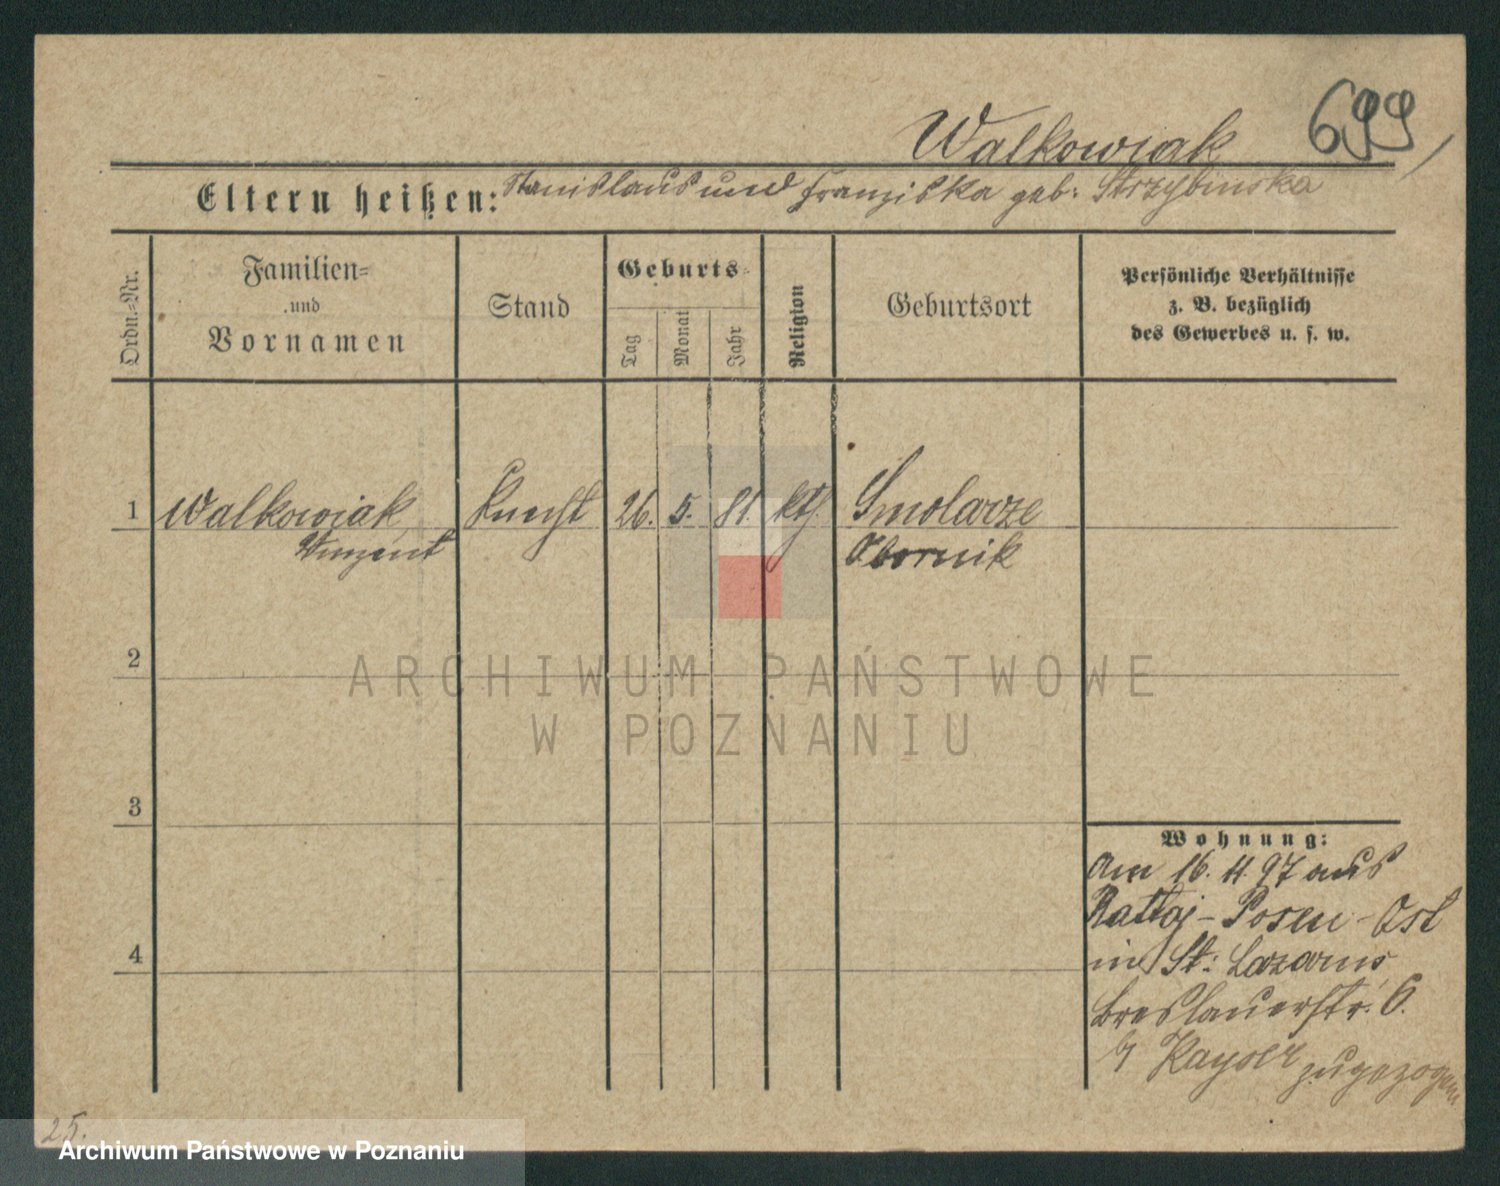 699
Walkowiak
Eltern heißen: Stanislaus und Franziska geb. Strzybinska
Ordn.=Nr.
Familien=
und
Vornamen
Stand
Geburts=
Tag
Monat
Jahr
Religion
Geburtsort
Persönliche Verhältnisse
z. B. bezüglich
des Gewerbes u. s. w.
1 Walkowiak Knecht 26. 5. 81. kth. Smolarze
Vinzent Obornik
2
ARCHIWUM PAŃSTWOWE
W POZNANIU
3
Wohnung:
Am 16. 11. 97 aus
Rattaj - Posen - Ost
4
in St: Lazarus,
Breslauerstr. 6.
b/ Kayser zugezogen
25.
Archiwum Państwowe w Poznaniu